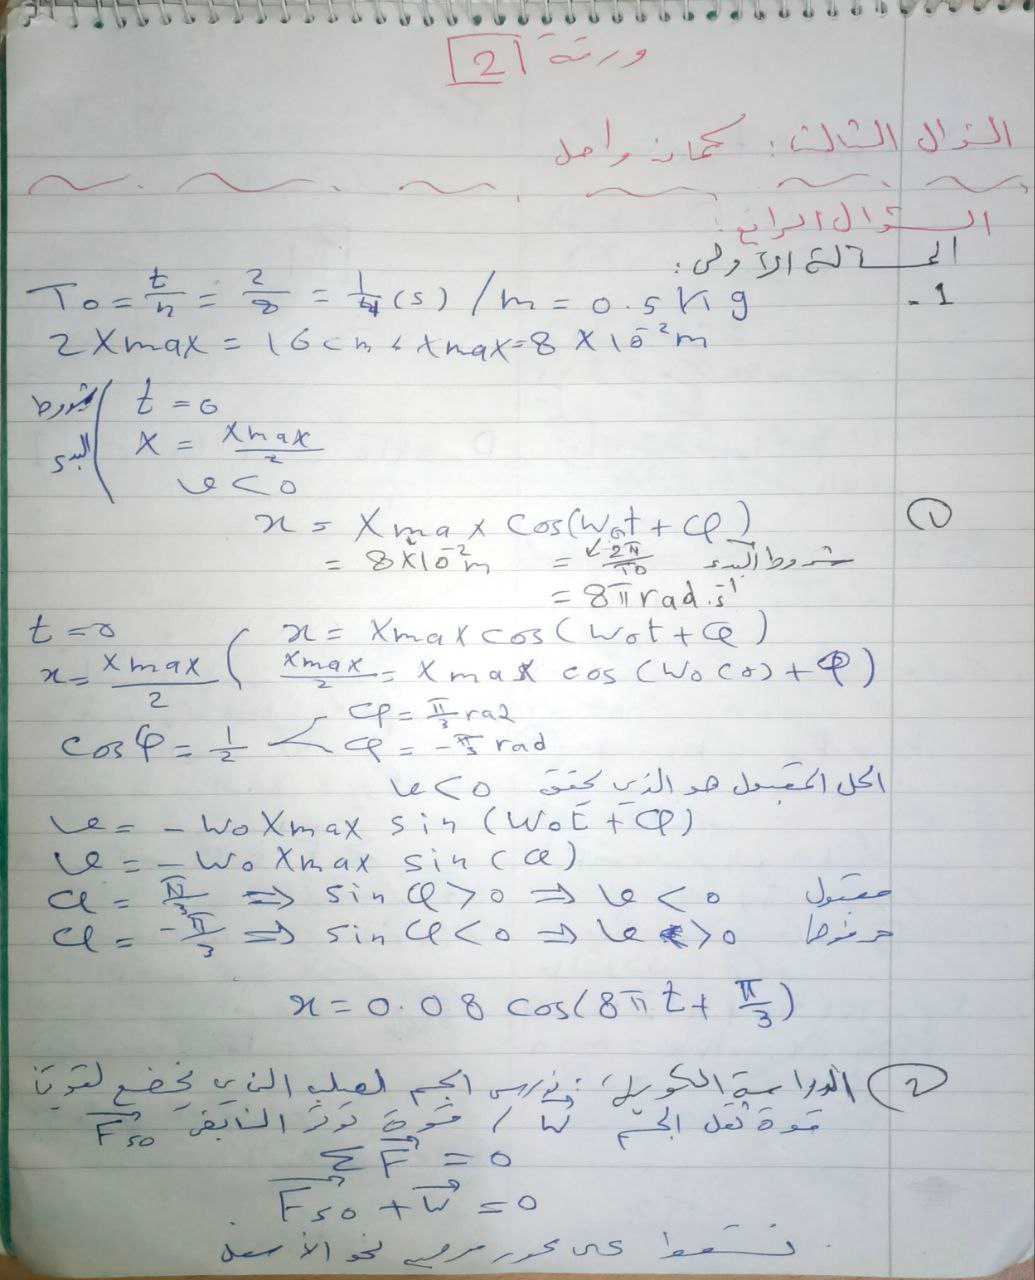 ورقة 2
السؤال الثالث: كمان واحل
السؤال الرابع:
المسألة الأولى:
1- T₀ = t/n = 2/8 = 1/4 (s) / m = 0.5 Kg
2 Xmax = 16 cm, Xmax = 8 × 10⁻² m
شروط البدء ( t = 0
X = Xmax/2
v < 0
① x = Xmax cos(ω₀t + φ)
= 8×10⁻² m = 2π/T₀ شروط البدء
= 8π rad.s⁻¹
t = 0 ( x = Xmax cos(ω₀t + φ)
x = Xmax/2 ( Xmax/2 = Xmax cos(ω₀(0) + φ)
φ = π/3 rad
cosφ = 1/2 < φ = -π/3 rad
الحل المقبول هو الذي يحقق v < 0
v = - ω₀ Xmax sin(ω₀t + φ)
v = - ω₀ Xmax sin(φ)
φ = π/3 ⇒ sin φ > 0 ⇒ v < 0 مقبول
φ = -π/3 ⇒ sin φ < 0 ⇒ v > 0 مرفوض
x = 0.08 cos(8πt + π/3)
② الدراسة السكونية: ندرس الجسم الصلب الذي يخضع لقوتان
قوة ثقل الجسم W / قوة توتر النابض Fs₀
ΣF = 0
Fs₀ + W = 0
نسقط على محور موجه نحو الأسفل